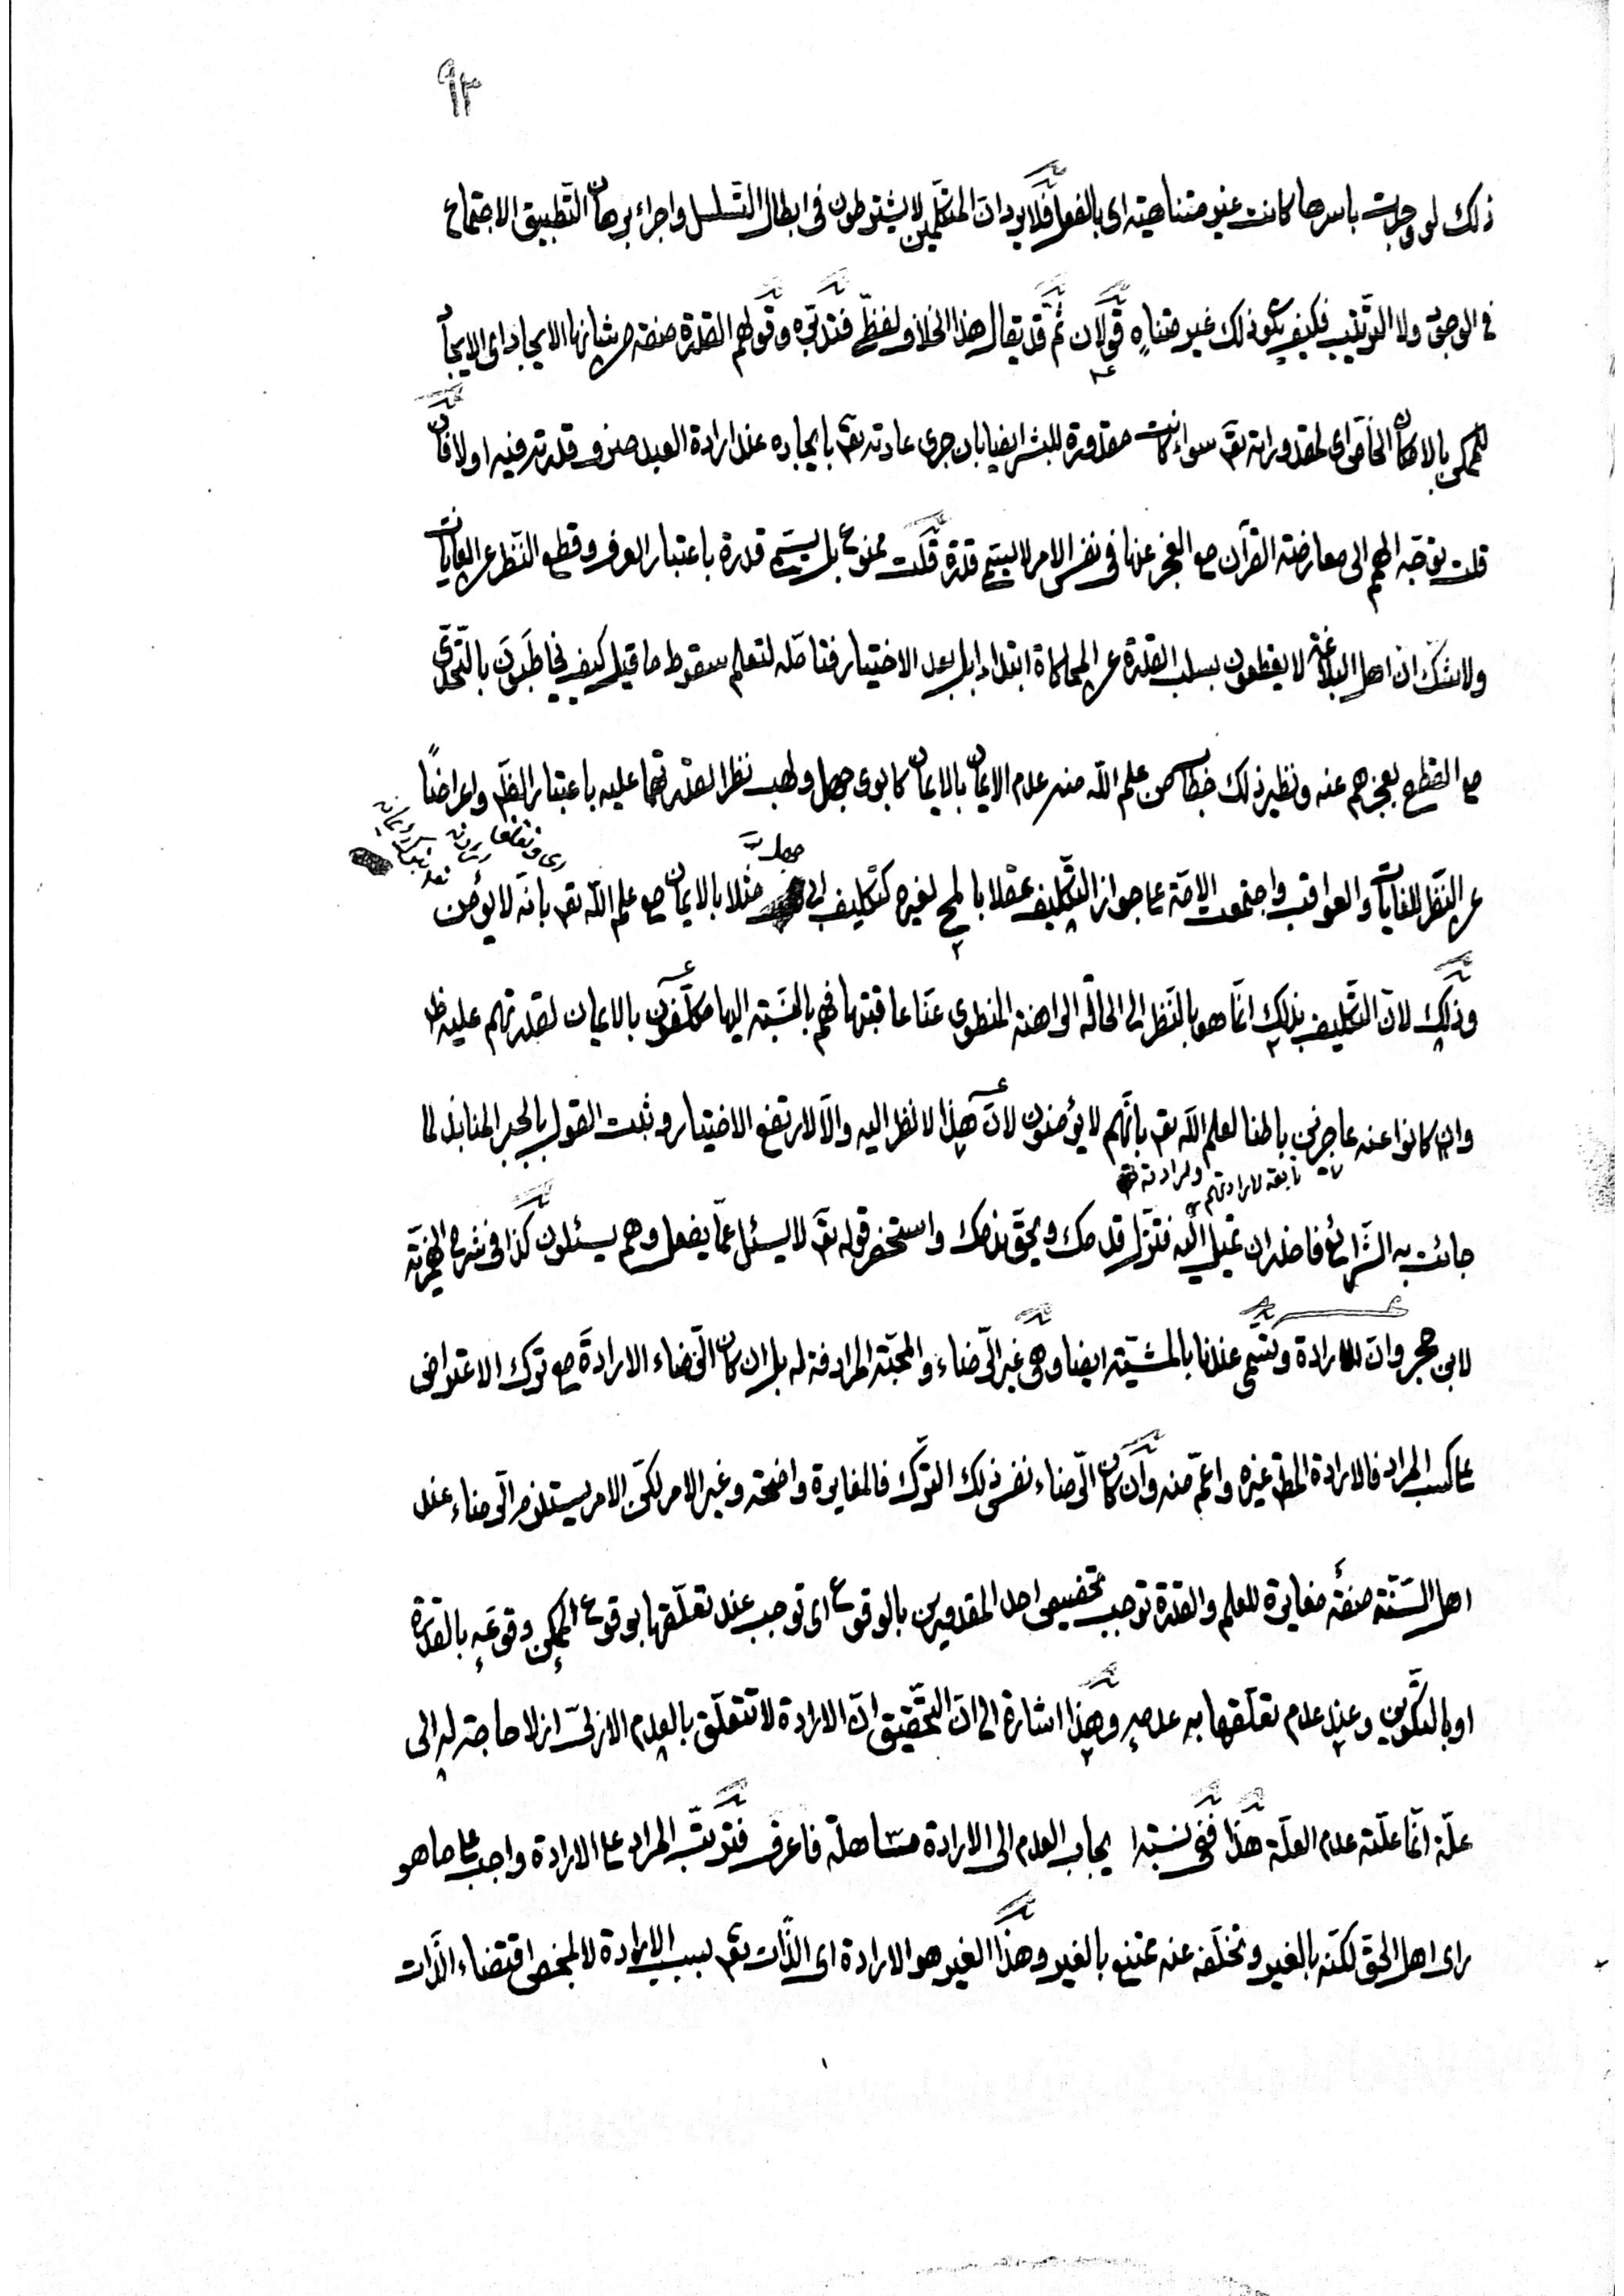 ٩٣
ذلك لو وجدت باسرها كانت غير متناهية اى بالفعل فلا يرد ان المتكلمين لا يشترطون فى ابطال التسلسل واجراء برهان التطبيق الاجتماع
فى الوجود ولا الترتيب فكيف يكون ذلك غير متناه قولان ثم قد يقال هذا الخلاف لفظى فتدبره وقولهم القدرة صفة من شانها الايجاد اى الايجاد
للممكن بالامكان الخاص اى لمقدوراته تق سواء كانت مقدورة للبشر ايضا بان جرى عادته تق بايجاده عند ارادة العبد صرف قدرته فيه او لا فان
قلت توجه الهمم الى معارضة القرآن مع العجز عنها فى نفس الامر لا يسمى قدرة قلت ممنوع بل يسمى قدرة باعتبار العرف وقطع النظر عن الغايات
ولا شك ان اهل البلاغة لا يقطعون بسلب القدرة عن المحاكاة ابتداء بل بعد الاختيار فتامله لتعلم سقوط ما قيل كيف يخاطبون بالتحدى
مع القطع بعجزهم عنه ونظير ذلك خطاب من علم الله منه عدم الايمان بالايمان كابوى جهل ولهب نظرا لقدرتهما عليه باعتبار الظاهر واعراضا
عن النظر للغايات والعواقب واجتمعت الامة على جواز التكليف عقلا بالمح لغيره كتكليف ابى جهل مثلا بالايمان مع علم الله تق بانه لا يؤمن
وذلك لان التكليف بذلك انما هو بالنظر الى الحالة الراهنة المنطوى عنا عاقبتها فهم بالنسبة اليها مكلفون بالايمان لقدرتهم عليه ظ
وان كانوا عنه عاجزين باطنا لعلم الله تق بانهم لا يؤمنون لان هذا لا نظر اليه والا لارتفع الاختيار وثبت القول بالجبر المنابذ لما
تابعة لارادتهم
جائت به الشرائع فاحذر ان تميل اليه فتزل قدمك ويحق ندمك واستحضر قوله تق لا يسئل عما يفعل وهم يسئلون كذا فى شرح الهمزية
لابن حجر وان الارادة وتسمى عندنا بالمشيته ايضا وهى غير الرضاء والمحبة المرادفة له بل ان كان الرضاء الارادة مع ترك الاعتراض
على كسب المراد فالارادة المط غيره واعم منه وان كان الرضاء نفس ذلك الترك فالمغايرة واضحة وغير الامر لكن الامر يستلزم الرضاء عند
اهل السنة صفة مغايرة للعلم والقدرة توجب تخصيص احد المقدورين بالوقوع اى توجب عند تعلقها بوقوع الممكن وقوعه بالقدرة
او بالتكوين وعند عدم تعلقها به عدمه وهذا اشارة الى ان التحقيق ان الارادة لا تتعلق بالعدم الازلى اذ لا حاجة له الى
علة انما علته عدم العلة هذا ففى نسبة ايجاب العدم الى الارادة مساهلة فاعرف فترتب المراد على الارادة واجب على ما هو
راى اهل الحق لكنه بالغير وتخلفه عنه ممتنع بالغير وهذا الغير هو الارادة اى الذات تق بسبب الارادة لا لمحض اقتضاء الذات